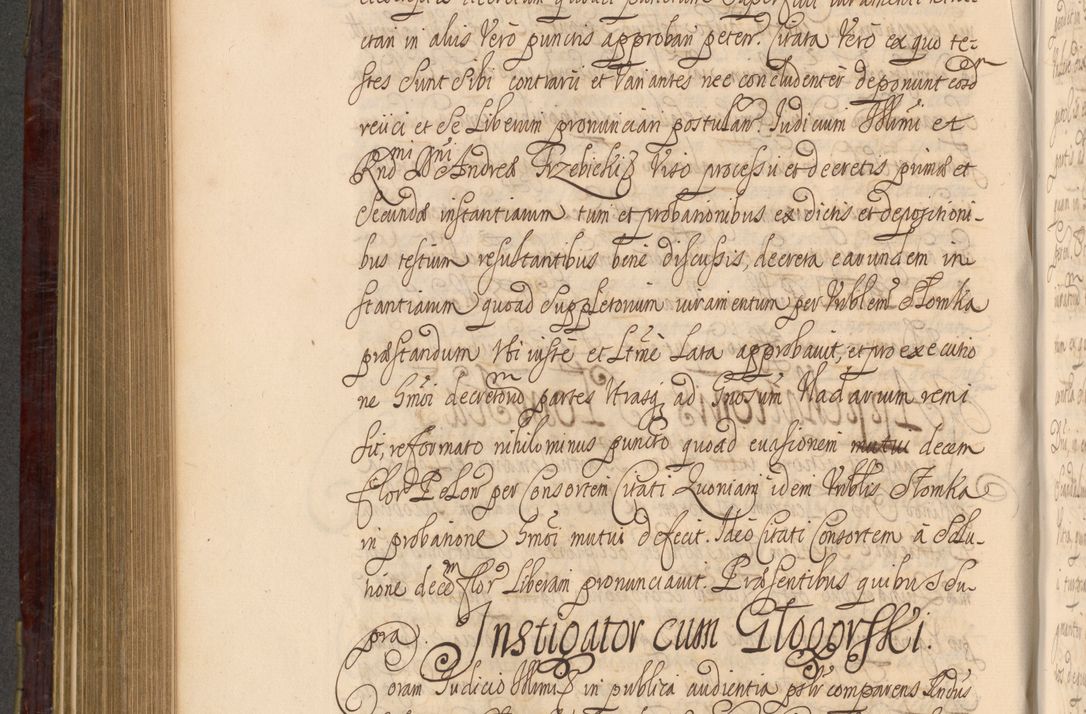 ctari in aliis Verò punctis approbari peten. Citata Verò ex quo te-
stes sunt sibi contrarii et Variantes nec concludenter deponunt eosd
reiici et se Liberam pronunciari postulan. Iudicium Illmi et
Rndmi Dni Andreæ Trzebicki Viso processu et decretis primæ et
secundæ instantiarum tum et probationibus ex dictis et depositioni-
bus testium resultantibus bene discussis, decreta earundem in
stantiarum quoad suppletorium iuramentum per Vnblem Słomka
præstandum Vti iustè et Ltmè Lata approbauit, et pro executio
ne hmoi decretorum partes Vtrasq ad Gnosum Vladarium remi
sit, reformato nihilominus puncto quoad euasionem decem
Flor Pelon per Consortem Citati Quoniam idem Vnblis Słomka
in probatione hmoi mutui defecit. Ideò Citati Consortem à Solu-
tione decem flor Liberam pronunciauit. Præsentibus quibus su-
pra.
Instigator cum Głogorski.
Coram Iudicio Illmi in publica audientia pslr comparens Lndus